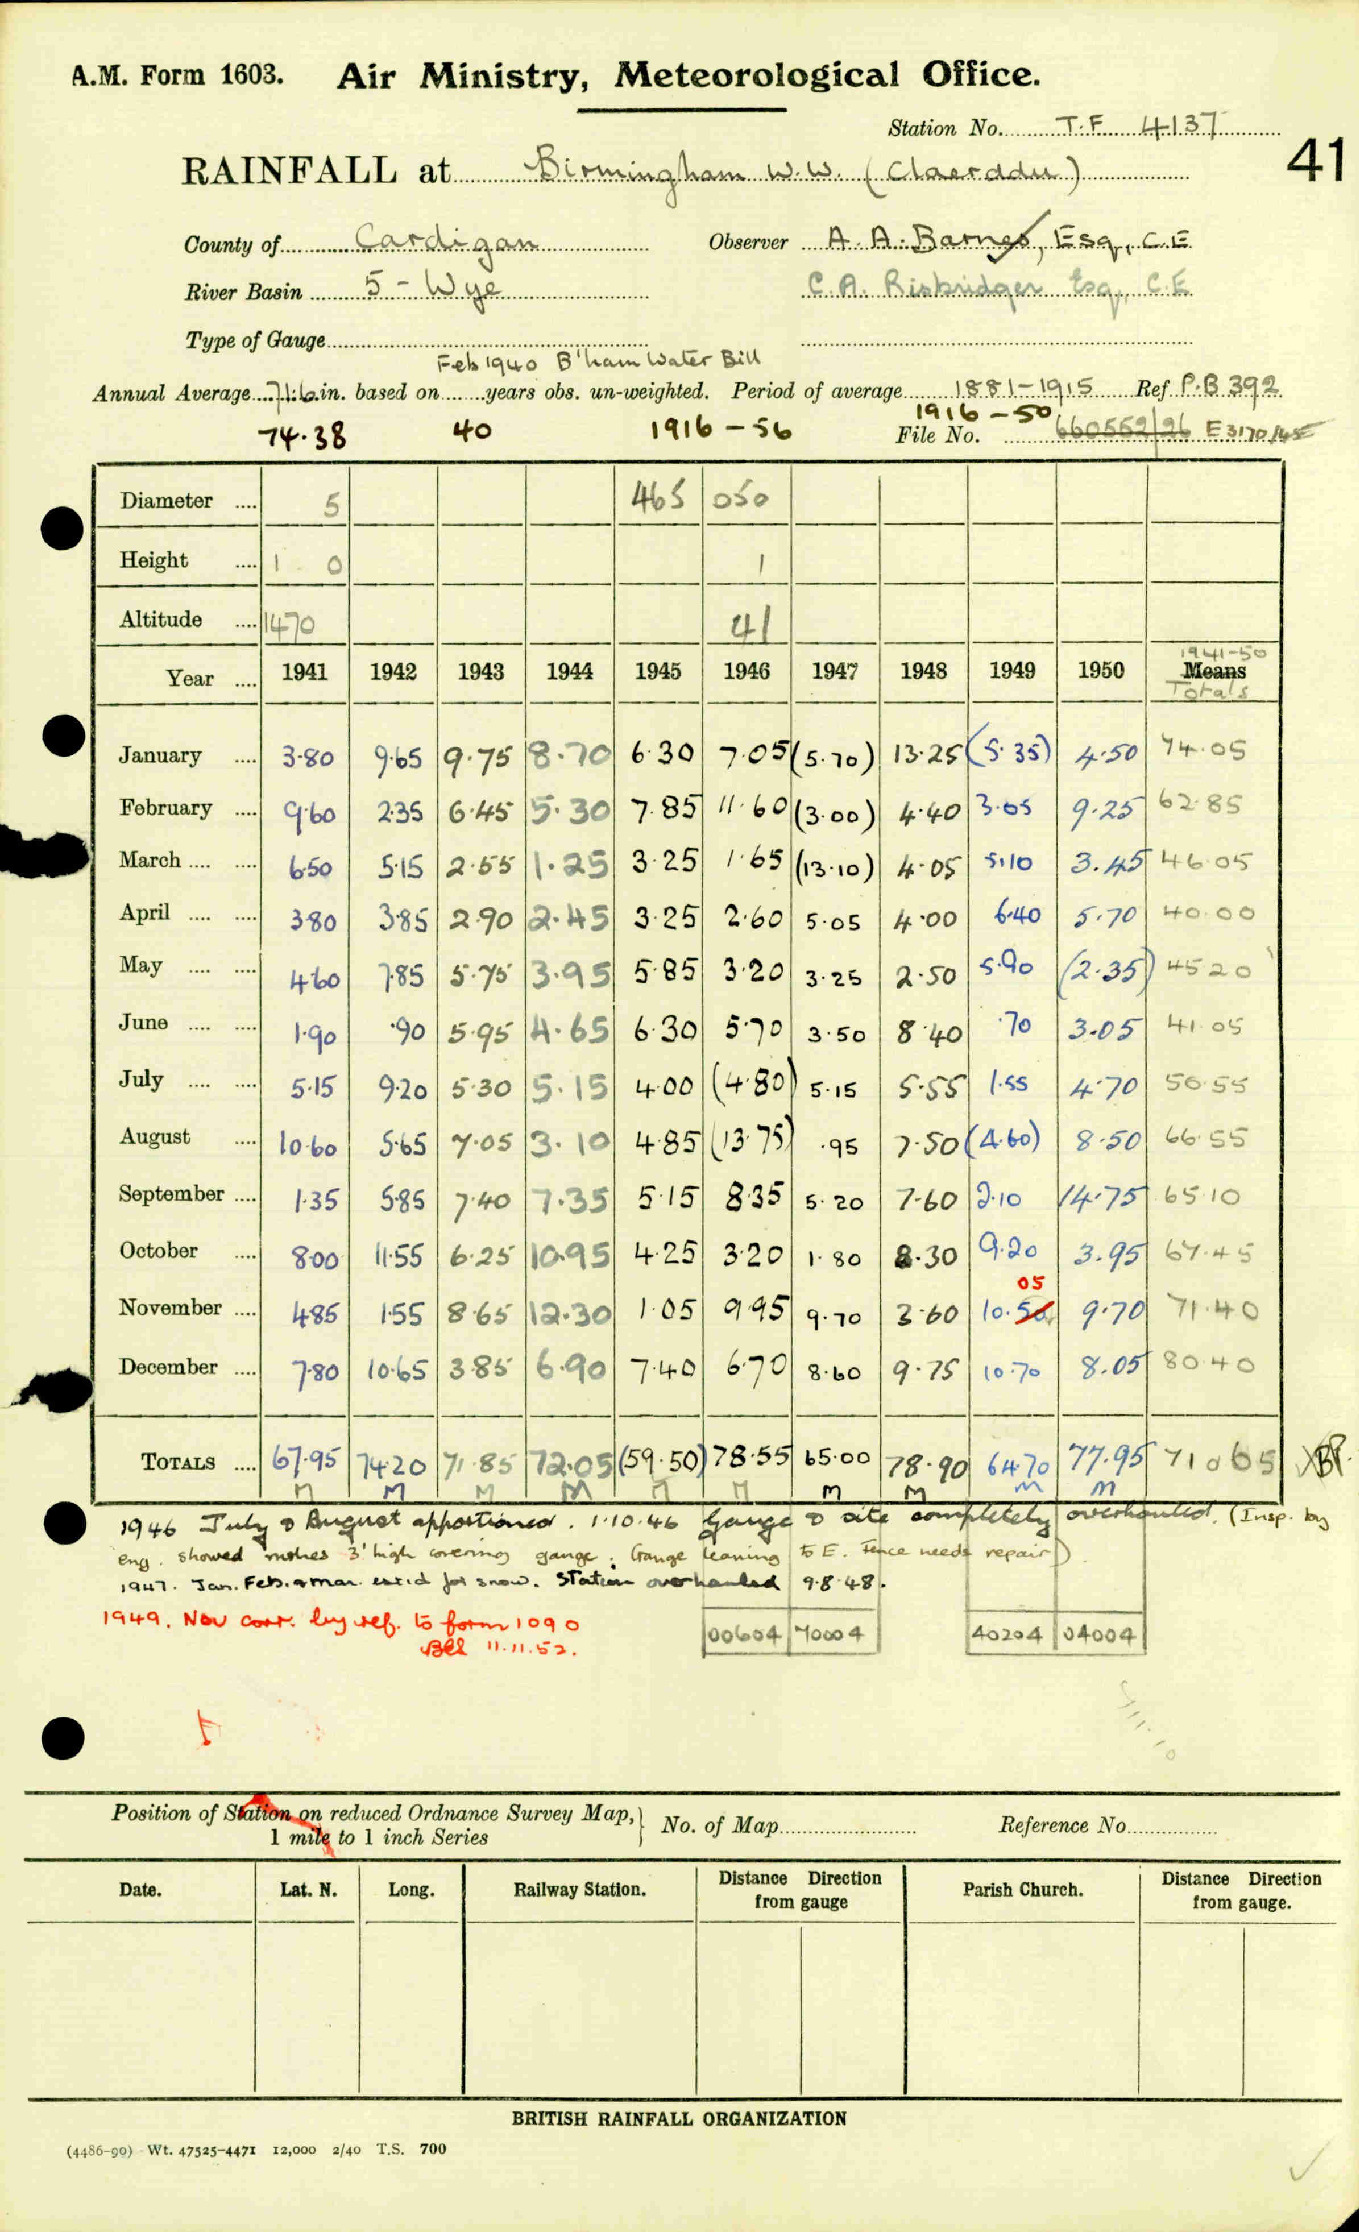 A.M. Form 1603. Air Ministry, Meteorological Office.
Station No. T.F 4137
41
RAINFALL at Birmingham W.W. (Claerddu)
County of Cardigan Observer A. A. Barnes, Esq., C.E
River Basin 5 - Wye C. A. Risbridger Esq., C.E
Type of Gauge
Feb 1940 B'ham Water Bill
Annual Average 71.6 in. based on years obs. un-weighted. Period of average 1881-1915 Ref P.B 392
1916 - 50
74.38 40 1916 - 56 File No. 660552/26 E3170/45
Diameter .... 5 465 050
Height .... 1 0 1
Altitude .... 1470 41
1941-50
Year .... 1941 1942 1943 1944 1945 1946 1947 1948 1949 1950 Means
Totals
January .... 3.80 9.65 9.75 8.70 6.30 7.05 (5.70) 13.25 (5.35) 4.50 74.05
February .... 9.60 2.35 6.45 5.30 7.85 11.60 (3.00) 4.40 3.05 9.25 62.85
March .... .... 6.50 5.15 2.55 1.25 3.25 1.65 (13.10) 4.05 5.10 3.45 46.05
April .... .... 3.80 3.85 2.90 2.45 3.25 2.60 5.05 4.00 6.40 5.70 40.00
May .... .... 4.60 7.85 5.75 3.95 5.85 3.20 3.25 2.50 5.90 (2.35) 45.20
June .... .... 1.90 .90 5.95 4.65 6.30 5.70 3.50 8.40 .70 3.05 41.05
July .... .... 5.15 9.20 5.30 5.15 4.00 (4.80) 5.15 5.55 1.55 4.70 50.55
August .... 10.60 5.65 7.05 3.10 4.85 (13.75) .95 7.50 (4.60) 8.50 66.55
September .... 1.35 5.85 7.40 7.35 5.15 8.35 5.20 7.60 2.10 14.75 65.10
October .... 8.00 11.55 6.25 10.95 4.25 3.20 1.80 8.30 9.20 3.95 67.45
05
November .... 4.85 1.55 8.65 12.30 1.05 9.95 9.70 3.60 10.50 9.70 71.40
December .... 7.80 10.65 3.85 6.90 7.40 6.70 8.60 9.75 10.70 8.05 80.40
TOTALS .... 67.95 74.20 71.85 72.05 (59.50) 78.55 65.00 78.90 64.70 77.95 710.65
M M M M M M M M M M
1946 July & August apportioned. 1.10.46 Gauge & site completely overhauled. (Insp. by
eng. showed rushes 3' high covering gauge. Gauge leaning to E. Fence needs repair).
1947. Jan. Feb. & Mar. estd for snow. Station overhauled 9.8.48.
1949. Nov corr. by ref. to form 1090
11.11.52.
00604 70004 40204 04004
Position of Station on reduced Ordnance Survey Map, 1 mile to 1 inch Series } No. of Map Reference No
Date. Lat. N. Long. Railway Station. Distance Direction from gauge Parish Church. Distance Direction from gauge.
BRITISH RAINFALL ORGANIZATION
(4486-90) Wt. 47525-4471 12,000 2/40 T.S. 700